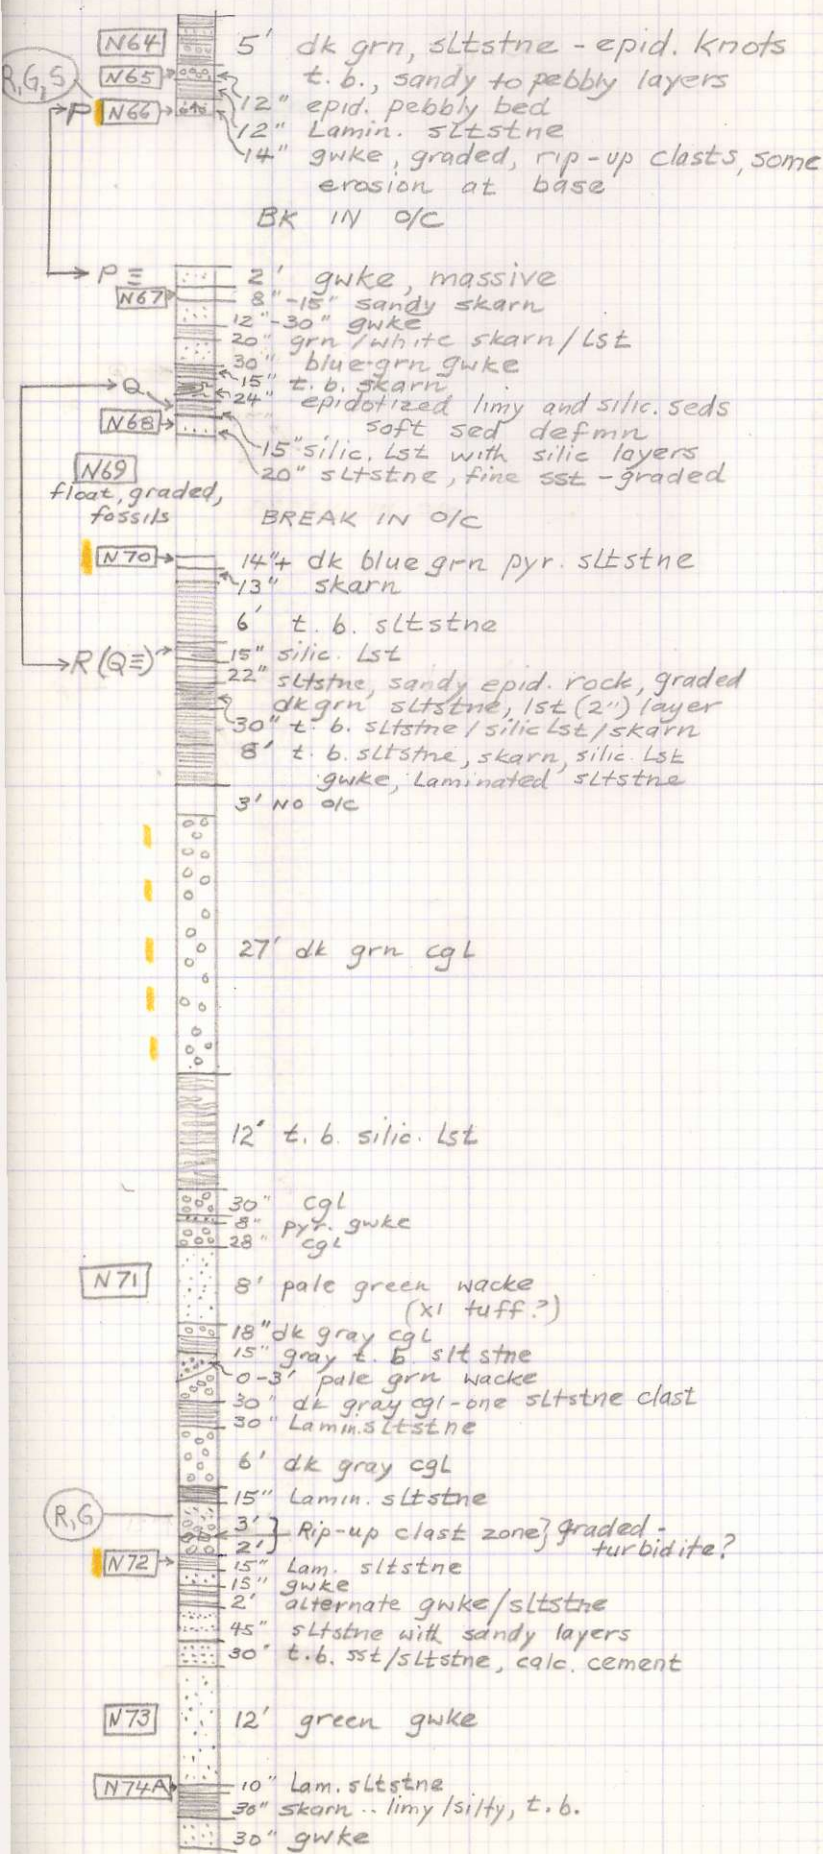 N64 5' dk grn, sltstne - epid. knots
R,G,S N65 t.b., sandy to pebbly layers
P N66 12" epid. pebbly bed
12" Lamin. sltstne
14" gwke, graded, rip-up clasts, some
erosion at base
BK IN O/C
P ≡ 2' gwke, massive
N67 8"-15" sandy skarn
12"-30" gwke
20" grn/white skarn/lst
30" blue-grn gwke
Q 15" t.b. skarn
24" epidotized limy and silic. seds
N68 soft sed defmn
15" silic. Lst with silic layers
N69 20" sltstne, fine sst - graded
float, graded,
fossils BREAK IN O/C
N70 14"+ dk blue grn pyr. sltstne
13" skarn
6' t.b. sltstne
R(Q≡) 15" silic. Lst
22" sltstne, sandy epid. rock, graded
dk grn sltstne, lst (2") layer
30" t.b. sltstne/silic lst/skarn
8' t.b. sltstne, skarn, silic. Lst
gwke, Laminated sltstne
3' NO O/C
27' dk grn cgl
12' t.b. silic. Lst
30" cgl
8" pyr. gwke
28" cgl
N71 8' pale green wacke
(xl tuff?)
18" dk gray cgl
15" gray t.b sltstne
0-3' pale grn wacke
30" dk gray cgl-one sltstne clast
30" Lamin. sltstne
6' dk gray cgl
15" Lamin. sltstne
R,G 3' } Rip-up clast zone} graded -
2' turbidite?
N72 15" Lam. sltstne
15" gwke
2' alternate gwke/sltstne
45" sltstne with sandy layers
30" t.b. sst/sltstne, calc. cement
N73 12' green gwke
N74A 10" Lam. sltstne
30" skarn .. limy/silty, t.b.
30" gwke